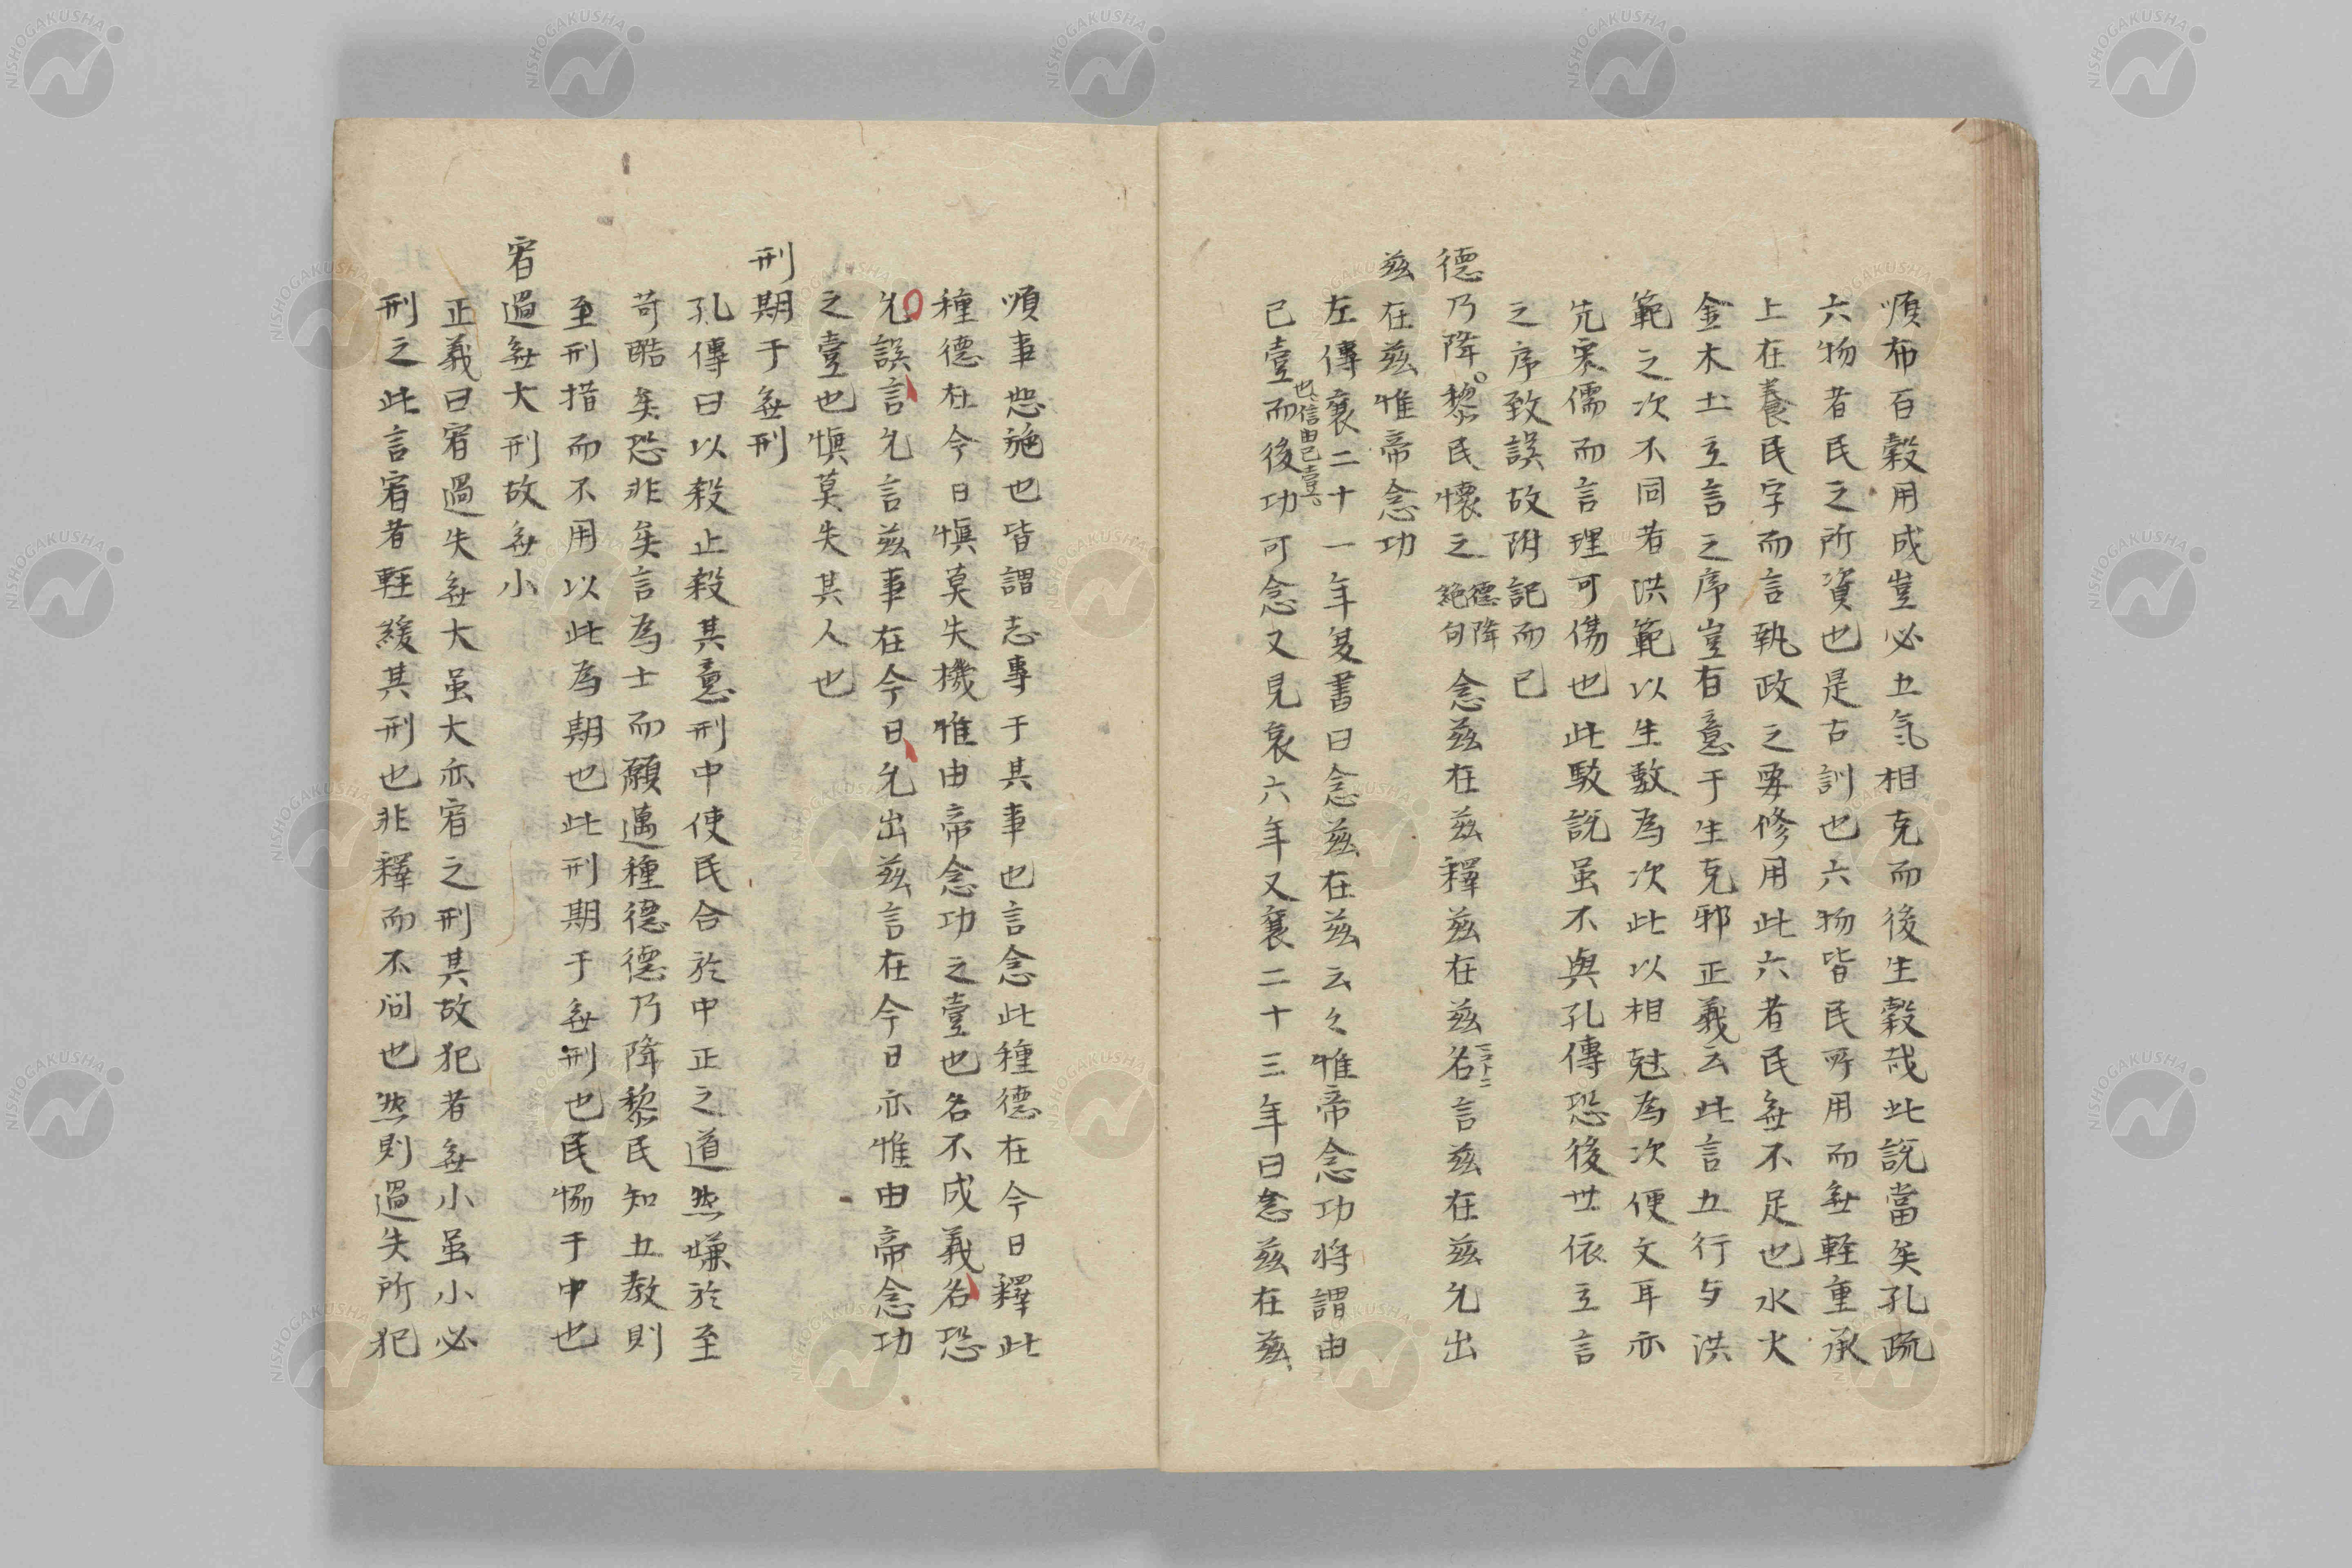 順布百穀用成豈必五気相克而後生穀哉此説當矣孔疏
六物者民之所資也是古訓也六物皆民所用而無軽重承
上在養民字而言執政之要修用此六者民無不足也水火
金木土立言之序豈有意于生克邪正義云此言五行与洪
範之次不同者洪範以生数為次此以相尅為次便文耳亦
先宋儒而言理可傷也此駁説虽不與孔傳恐後世依立言
之序致誤故附記而已
德乃降。黎民懐之德降絶句念茲在茲釋茲在茲名言茲在茲允出
茲在茲惟帝念功
左傳襄二十一年夏書曰念茲在茲云々惟帝念功将謂由
己壹也、信由己壹。而後功可念又見哀六年又襄二十三年曰念茲在茲、
順事恕施也皆謂志專于其事也言念此種德在今日釋此
種德在今日慎莫失機惟由帝念功之壹也名不成義名恐
允誤言允言茲事在今日允出茲言在今日亦惟由帝念功
之壹也慎莫失其人也
刑期于無刑
孔傳曰以殺止殺其意刑中使民合於中正之道然嫌於至
苛酷矣恐非矣言為士而願邁種德德乃降黎民知五教則
至刑措而不用以此為期也此刑期于無刑也民恊于中也
宥過無大刑故無小
正義曰宥過失無大虽大亦宥之刑其故犯者無小虽小必
刑之此言宥者軽緩其刑也非釋而不问也然則過失所犯
NISHOGAKUSHA